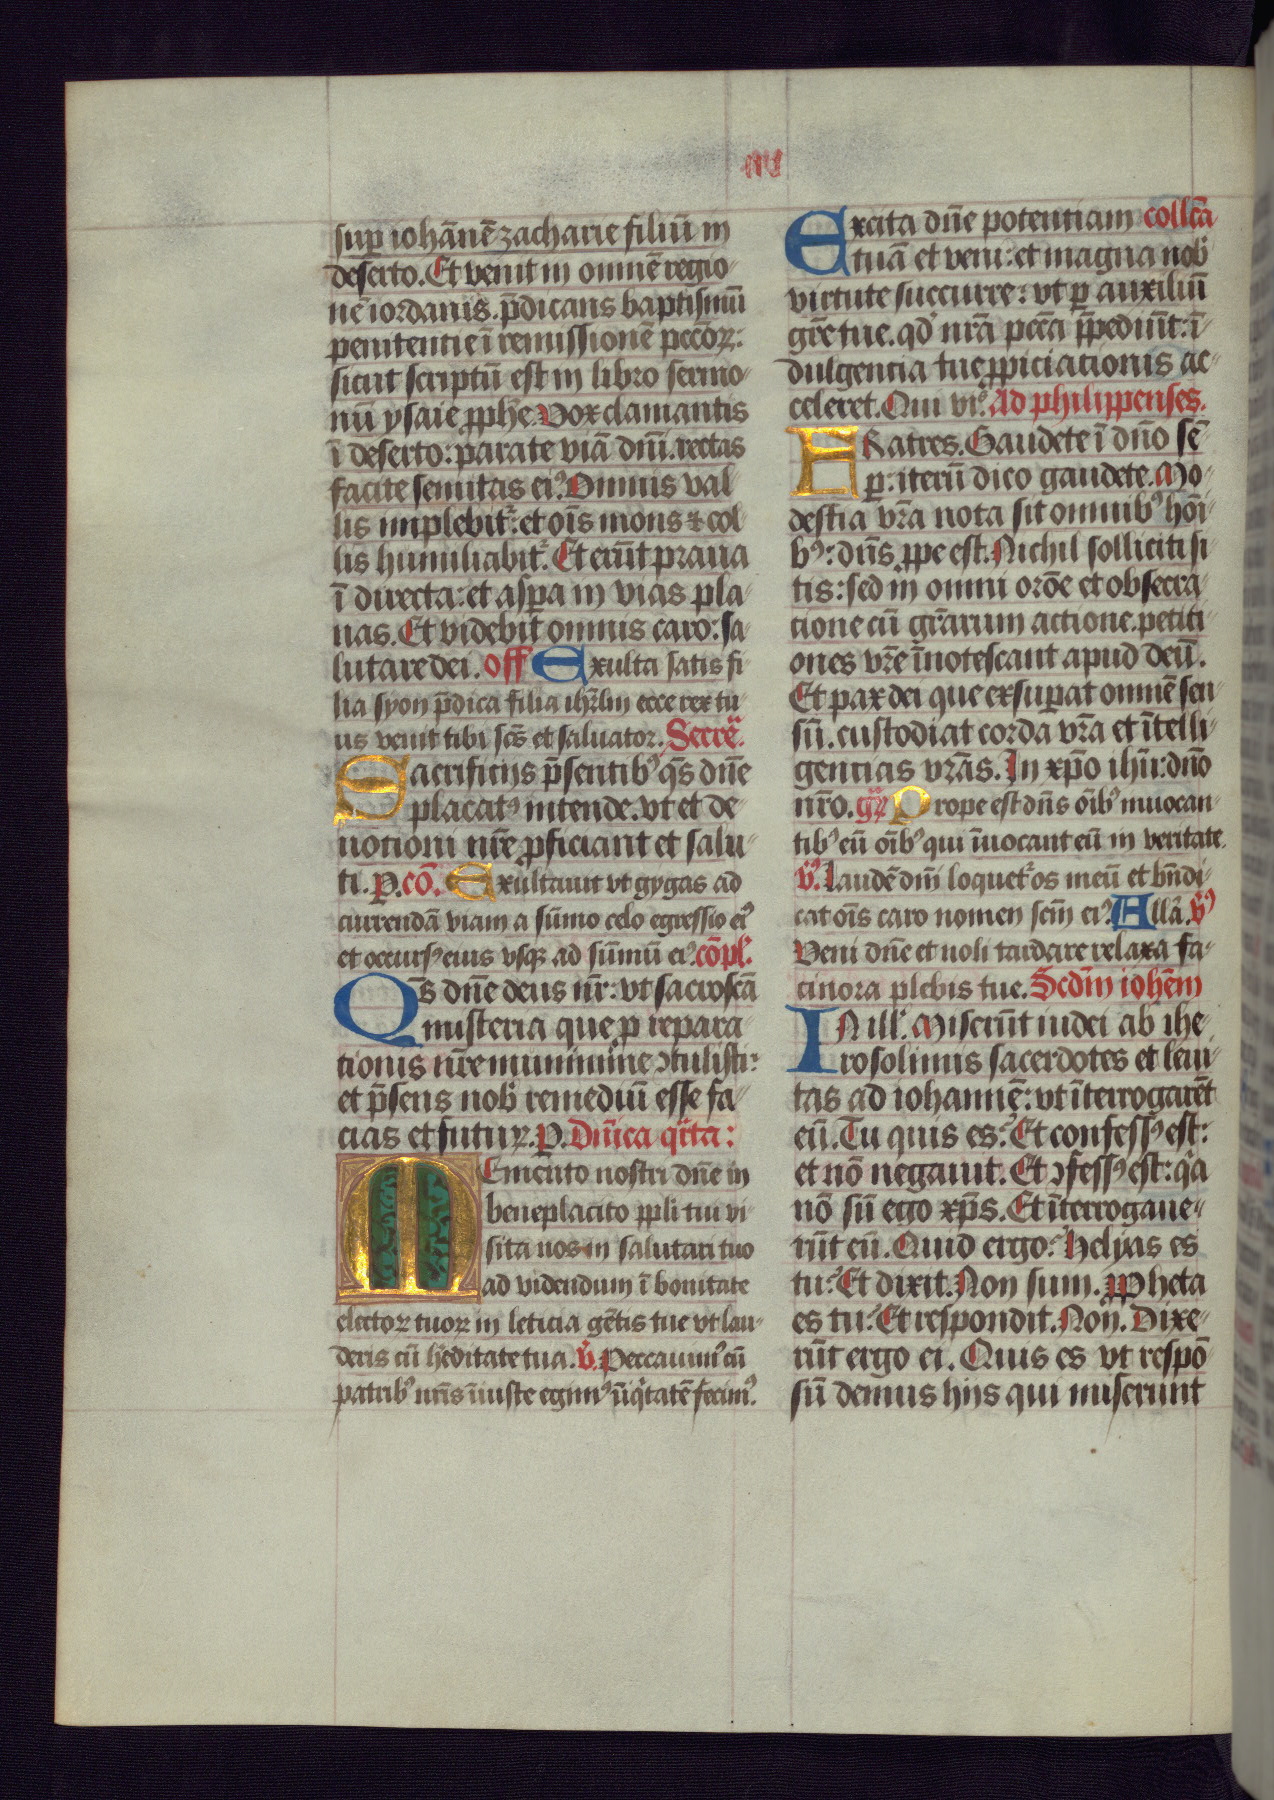 iiii
sup iohānē zacharie filiū in
deserto. Et venit in omnē regio
nē iordanis. p̄dicans baptismū
penitentie ī remissionē pcc̄oꝝ:
sicut scriptū est in libro sermo
nū ysaie ꝓphe. Vox clamantis
ī deserto: parate viā dn̄i. rectas
facite semitas eiꝰ. Omnis val
lis implebit᷑: et oīs mons & col
lis humiliabit᷑. Et erūt praua
ī directa: et aspa in vias pla
nas. Et videbit omnis caro: sa
lutare dei. off Exulta satis fi
lia syon p̄dica filia ihrl̄m ecce rex tu
us venit tibi scs̄ et saluator. Secrē.
Sacrificijs p̄sentibꝰ qs̄ dn̄e
placatꝰ intende. vt et de
uotioni nr̄e ꝓficiant et salu
ti. P. cō. Exultauit vt gygas ad
currendā viam a sūmo celo egressio eiꝰ
et occursꝰ eius vsqꝫ ad sūmū eiꝰ. cōpl̄.
Qs̄ dn̄e deus nr̄: vt sacroscā
misteria que ꝓ repara
tionis nr̄e munimine ꝯtulisti:
et p̄sens nob̄ remediū esse fa
cias et futuꝝ. P. Dn̄ica qr̄ta:
Memento nostri dn̄e in
beneplacito ppli tui vi
sita nos in salutari tuo
ad videndum ī bonitate
electoꝝ tuoꝝ in leticia gētis tue vt lau
deris cū hēditate tua. v̄. Peccauimꝰ cū
patribꝰ nr̄is īiuste egimꝰ īiqͥtatē fecimꝰ.
Excita dn̄e potentiam collcā
tuā et veni: et magna nob̄
virtute succurre: vt ꝑ auxiliū
grē tue. qd̄ nrā pccā p̄pediūt: ī
dulgencia tue ꝓpiciacionis ac
celeret. Qui viꝰ. Ad philippenses.
FRatres. Gaudete ī dn̄o sē
ꝑ. iterū dico gaudete. Mo
destia vrā nota sit omnibꝰ hoī
bꝰ: dn̄s ꝓpe est. Nichil solliciti si
tis: sed in omni orōe et obsecra
cione cū grārum actione. petiti
ones vrē īnotescant apud deū.
Et pax dei que exsuꝑat omnē sen
sū. custodiat corda vrā et ītelli
gentias vrās. In xp̄o ihū: dn̄o
nrō. gr̄ Prope est dn̄s oībꝰ inuocan
tibꝰ eū oībꝰ qui īuocant eū in veritate.
v̄. Laudē dn̄i loquet᷑ os meū et bn̄di
cat oīs caro nomen scm̄ eiꝰ. Allā. v̄ꝰ
Veni dn̄e et noli tardare relaxa fa
cinora plebis tue. Scdm̄ iohēm
IN ill̄. Miserūt iudei ab ihe
rosolimis sacerdotes et leui
tas ad iohannē: vt īterrogarēt
eū. Tu quis es? Et confessꝰ est:
et nō negauit. Et ꝯfessꝰ est: qͥa
nō sū ego xp̄s. Et īterrogaue
rūt eū. Quid ergo? Helyas es
tu? Et dixit. Non sum. ꝓpheta
es tu? Et respondit. Non. Dixe
rūt ergo ei. Quis es vt respō
sū demus hijs qui miserunt